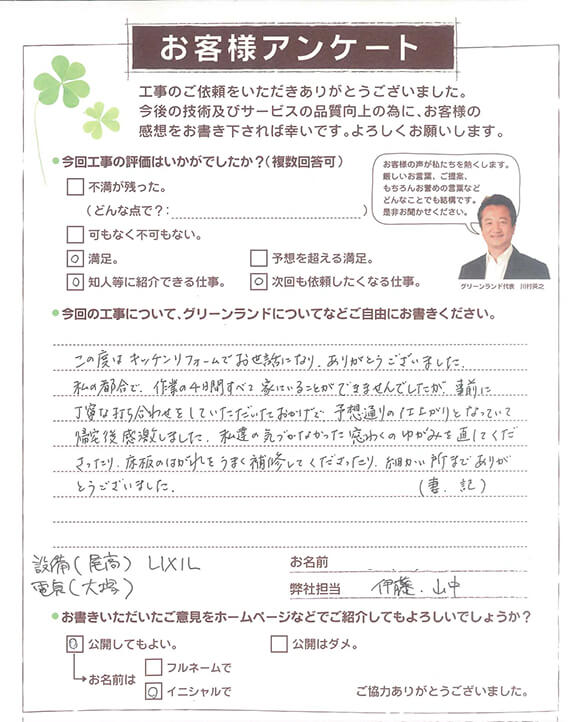 お客様アンケート
工事のご依頼をいただきありがとうございました。
今後の技術及びサービスの品質向上の為に、お客様の
感想をお書き下されば幸いです。よろしくお願いします。
●今回工事の評価はいかがでしたか?(複数回答可)
お客様の声が私たちを熱くします。
厳しいお言葉、ご提案、
もちろんお誉めの言葉など
どんなことでも結構です。
是非お聞かせください。
不満が残った。
(どんな点で?: )
可もなく不可もない。
○ 満足。
予想を超える満足。
○ 知人等に紹介できる仕事。
○ 次回も依頼したくなる仕事。
グリーンランド代表 川村英之
●今回の工事について、グリーンランドについてなどご自由にお書きください。
この度はキッチンリフォームでお世話になり、ありがとうございました。
私の都合で、作業の4日間すべて家にいることができませんでしたが、事前に
丁寧な打ち合わせをしていただいたおかげで、予想通りの仕上がりとなっていて
帰宅後感激しました。私達の気づかなかった窓わくのゆがみを直してくだ
さったり、床板のはがれをうまく補修してくださったり、細かい所までありが
とうございました。 (妻.記)
設備(尾高) LIXIL
電気(大塚)
お名前
弊社担当 伊藤.山中
●お書きいただいたご意見をホームページなどでご紹介してもよろしいでしょうか?
○ 公開してもよい。
公開はダメ。
→お名前は
フルネームで
○ イニシャルで
ご協力ありがとうございました。